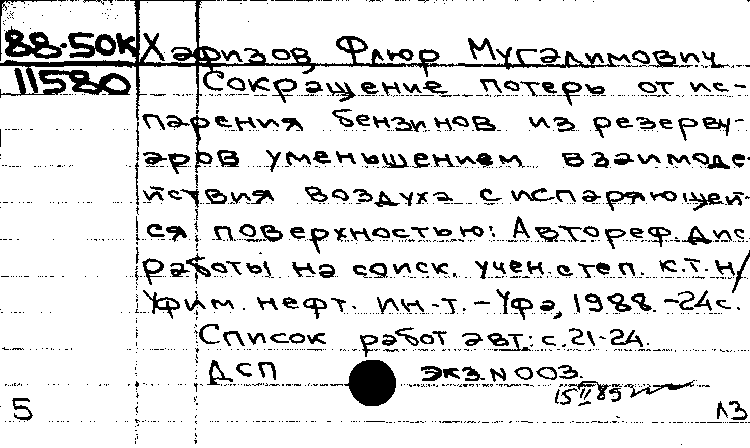 88-50к Хафизов, Флюр Мугалимович
11580 Сокращение потерь от ис-
парения бензинов из резерву-
аров уменьшением взаимоде-
йствия воздуха с испаряющей-
ся поверхностью: Автореф. дис
работы на соиск. учен. степ. к.т.н/
Уфим. нефт. ин-т. – Уфа, 1988. – 24 с.
Список работ авт.: с. 21-24.
ДСП экз. N 003.
15 II 89
5 ЛЗ